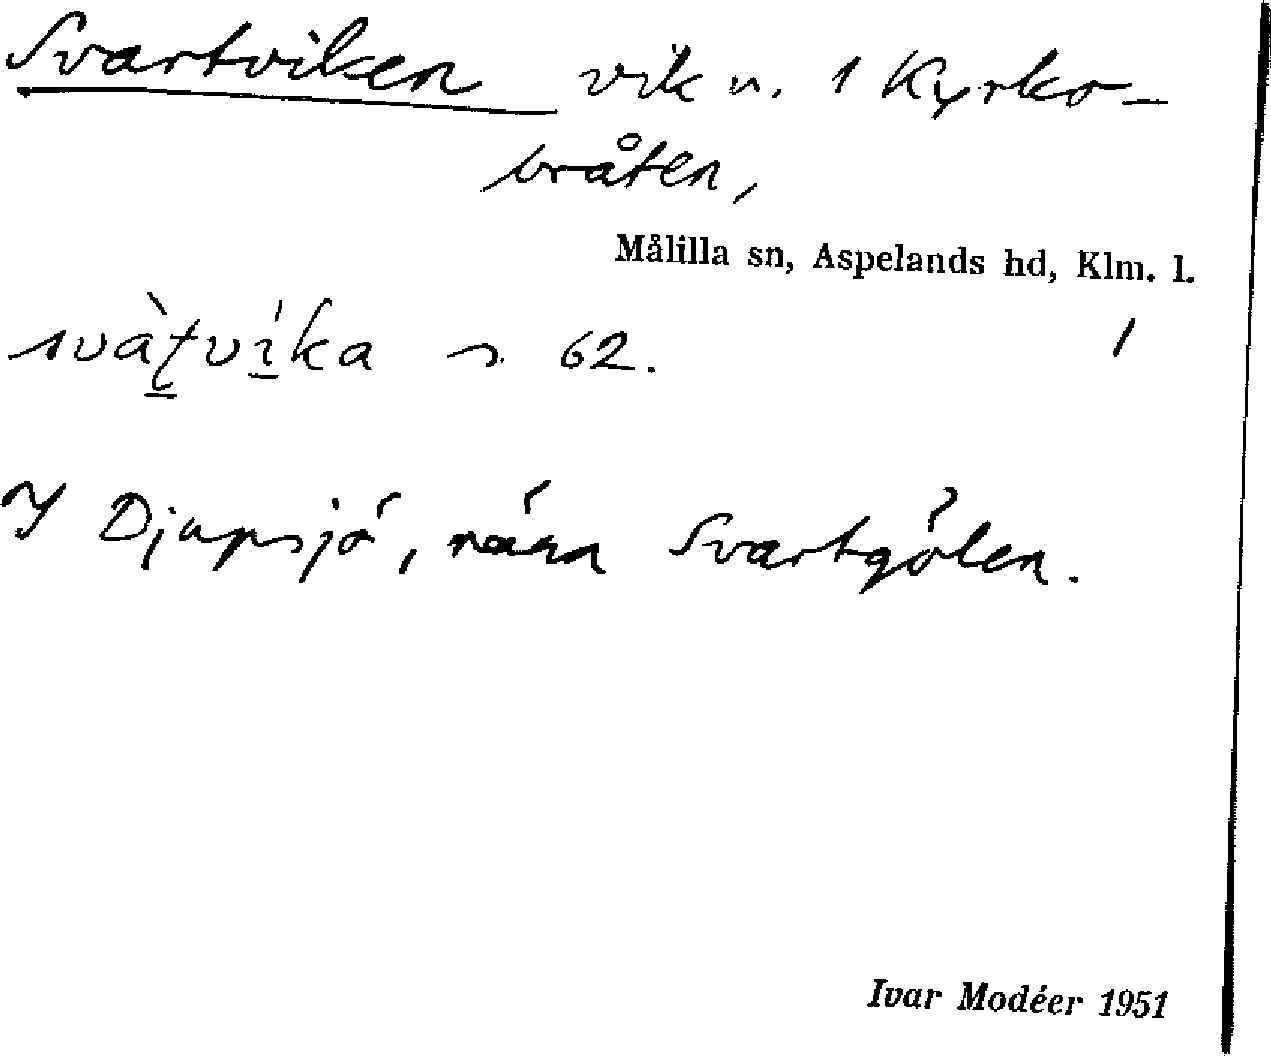 Svartviken vik n. 1 Kyrko-
bråten,
Målilla sn, Aspelands hd, Klm. l.
svàt̠vi̠ka s. 62. 1
I Djupsjö, nära Svartgölen.
Ivar Modéer 1951